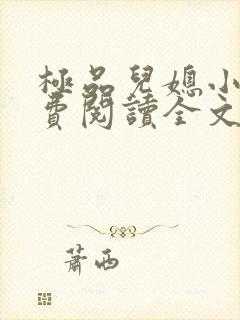 極品兒媳小
費閱讀全文
蕭西